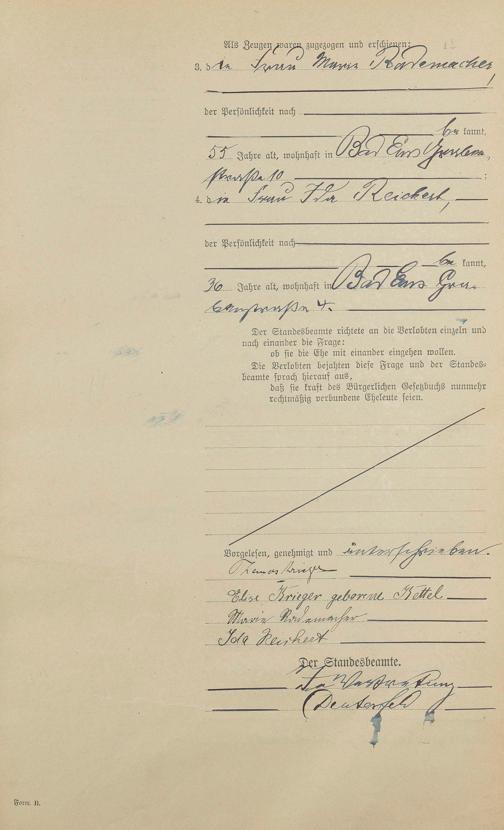 Als Zeugen waren zugezogen und erschienen:
3. die Frau Marie Rademacher,
der Persönlichkeit nach
bekannt,
55 Jahre alt, wohnhaft in Bad Ems Graben-
straße 10 ;
4. die Frau Ida Reichert,
der Persönlichkeit nach
bekannt,
36 Jahre alt, wohnhaft in Bad Ems Gra-
benstraße 4.
Der Standesbeamte richtete an die Verlobten einzeln und
nach einander die Frage:
ob sie die Ehe mit einander eingehen wollen.
Die Verlobten bejahten diese Frage und der Standes-
beamte sprach hierauf aus,
daß sie kraft des Bürgerlichen Gesetzbuchs nunmehr
rechtmäßig verbundene Eheleute seien.
Vorgelesen, genehmigt und unterschrieben.
Thomas Krieger
Elise Krieger geborene Kettel
Marie Rademacher
Ida Reichert
Der Standesbeamte.
In Vertretung
Form. B.